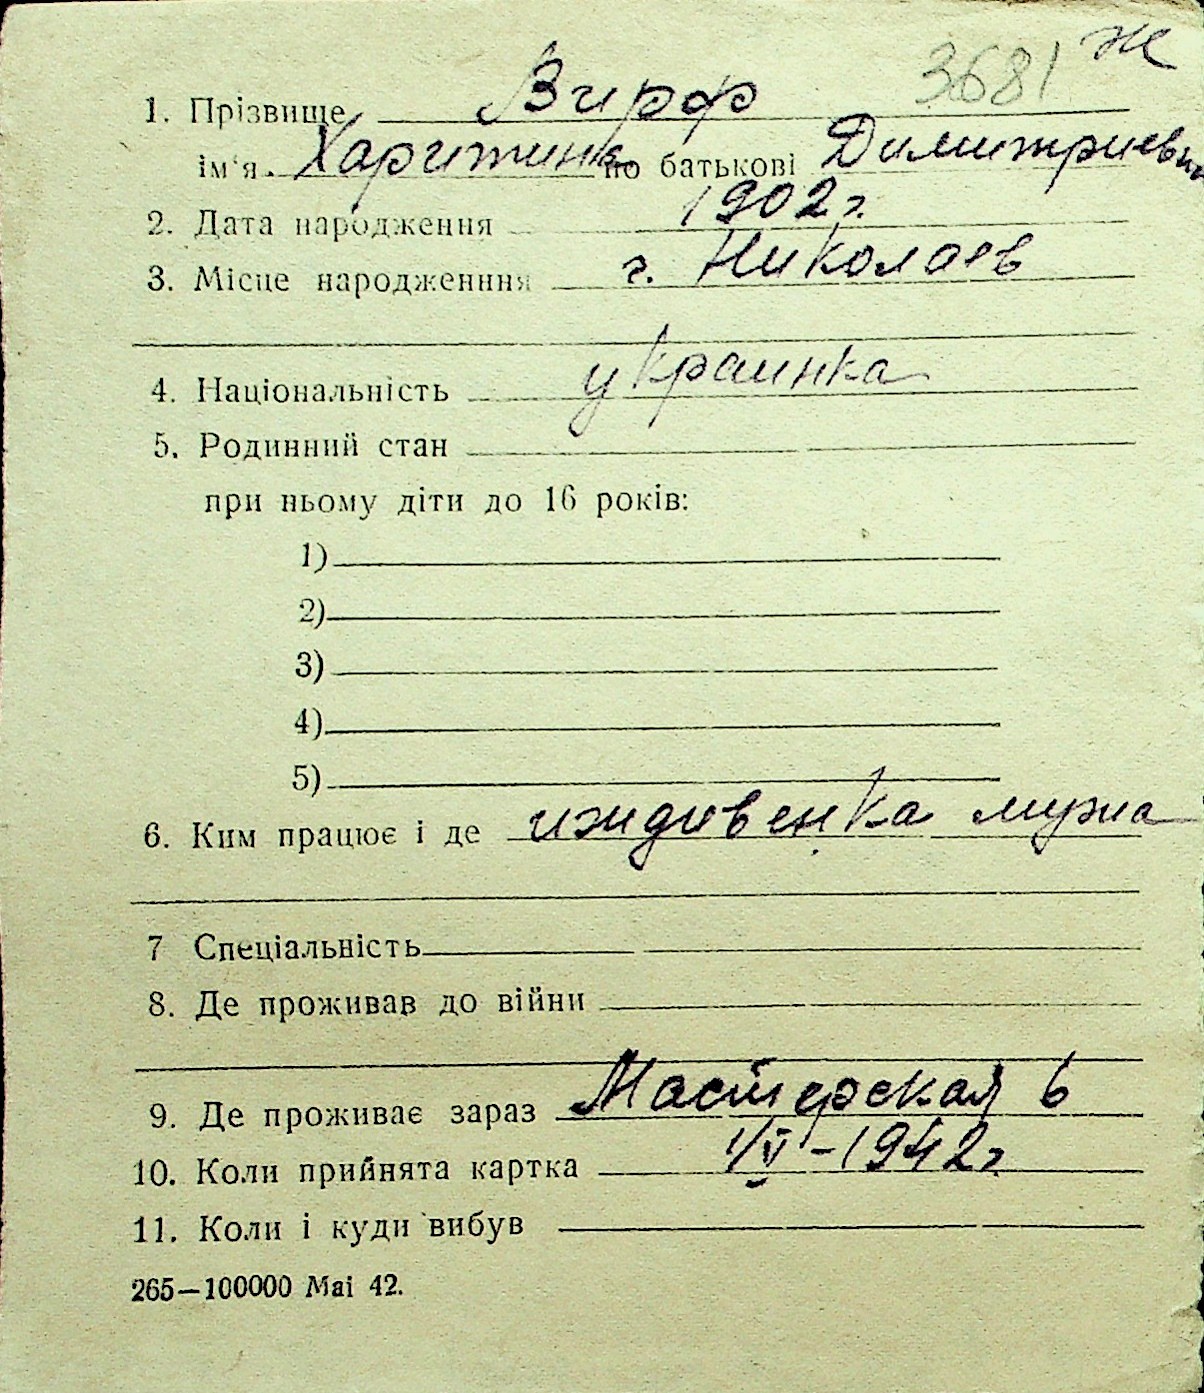 3681 Ж
1. Прізвище Вирф
ім'я. Харитина по батькові Димитриевна
2. Дата народження 1902 г.
3. Місце народженння г. Николаев
4. Національність украинка
5. Родинний стан
при ньому діти до 16 років:
1)
2)
3)
4)
5)
6. Ким працює і де иждивенка мужа
7 Спеціальність
8. Де проживав до війни
9. Де проживає зараз Мастерская 6
10. Коли прийнята картка 1/V-1942 г
11. Коли і куди вибув
265—100000 Mai 42.